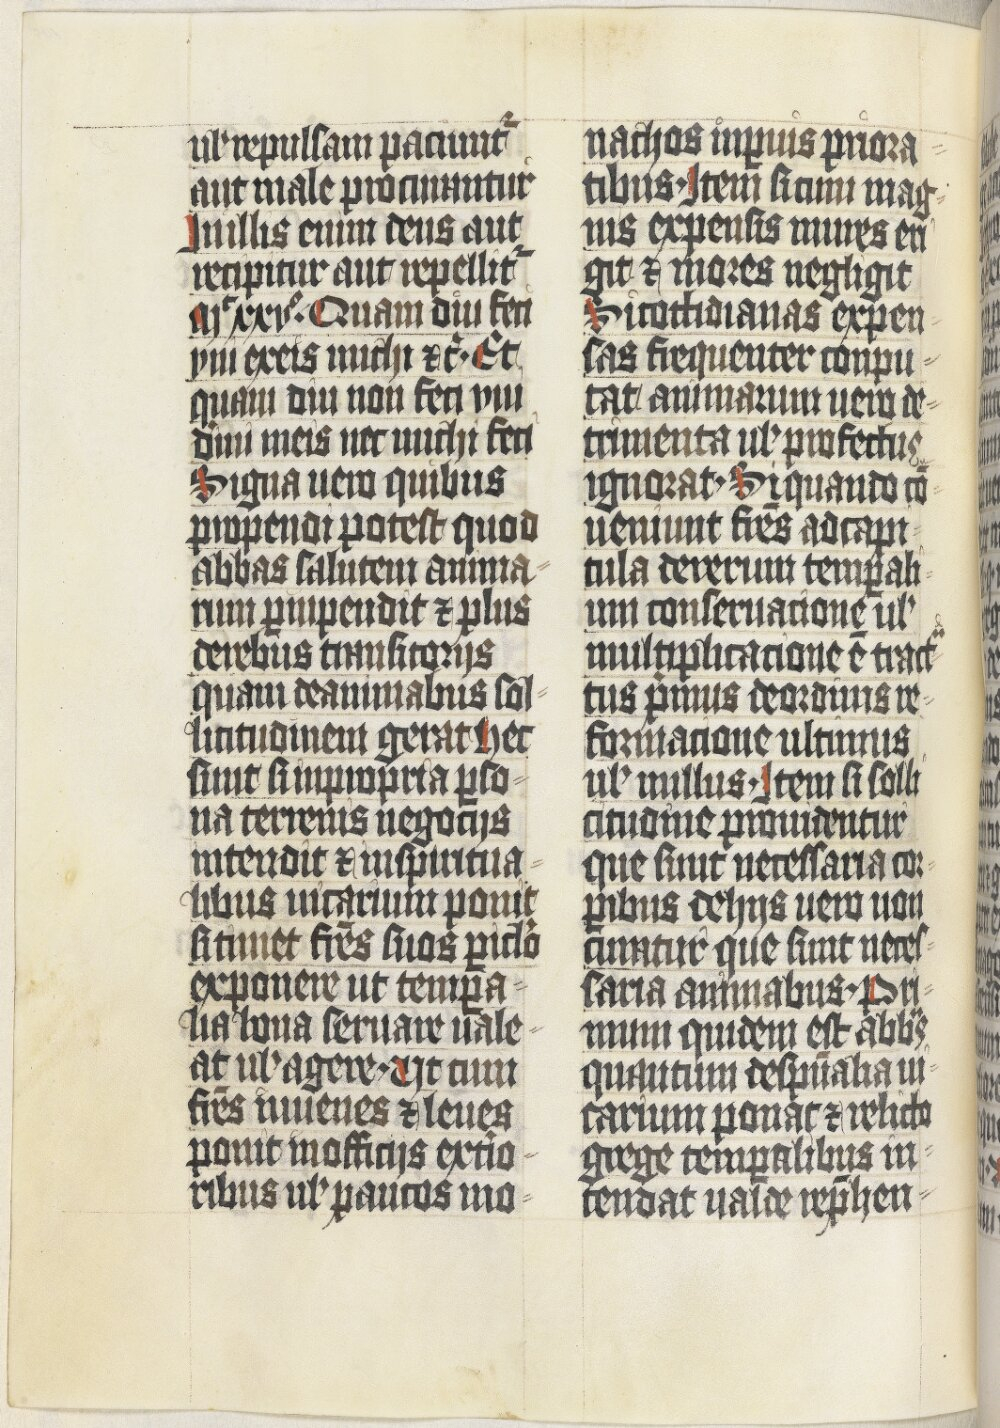 ul' repulsam paciunt᷑
aut male procurantur
Jn illis enim deus aut
recipitur aut repellit᷑
mͭ xxvͦ. Quam diu feci
vni ex eis michi ⁊ cͭ. Et
quam diu non feci vni
d'nni meis nec michi feci
Signa uero quibus
propendi potest quod
abbas salutem anima⸗
rum p̄uipendit ⁊ plus
de rebus transitorijs
quam de animabus sol⸗
licitudinem gerat Hec
sunt si in propria p̱so⸗
na terrenis negocijs
intendit ⁊ in spiritua⸗
libus uicarium ponit
si timet fr̄es suos pic̄lo
exponere ut temp̱a⸗
lia bona seruare uale⸗
at ul' agere. Vt cum
fr̄es iuuenes ⁊ leues
ponit in officijs exterio⸗
ribus ul' paucos mo⸗
nachos in p̱uis priora⸗
tibus. Jtem si cum mag⸗
nis expensis muros eri
git ⁊ mores negligit
Si cottidianas expen⸗
sas frequenter conpu⸗
tat animarum uero de⸗
trimenta ul' profectus
ignorat. Si quando cō
ueniunt fr̄es ad capi⸗
tula de rerum temp̱ali⸗
um conseruacione ul'
multiplicacione ē tracta
tus p̍mus de ordinis re⸗
formacione ultimus
ul' nullus. Jtem si solli
citudine prouidentur
que sunt necessaria cor⸗
pibus de hijs uero non
curatur que sunt neces⸗
saria animabus. Pri⸗
mum quidem est abb̄s
quantum de sp̄ualia ui⸗
carium ponat ⁊ relicto
grege temp̱alibus in⸗
tendat ualde rep̄hen⸗